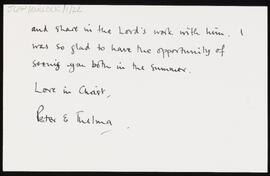 and share in the Lord's work with him. I
was so glad to have the opportunity of
seeing you both in the summer.
Love in Christ,
Peter & Thelma.